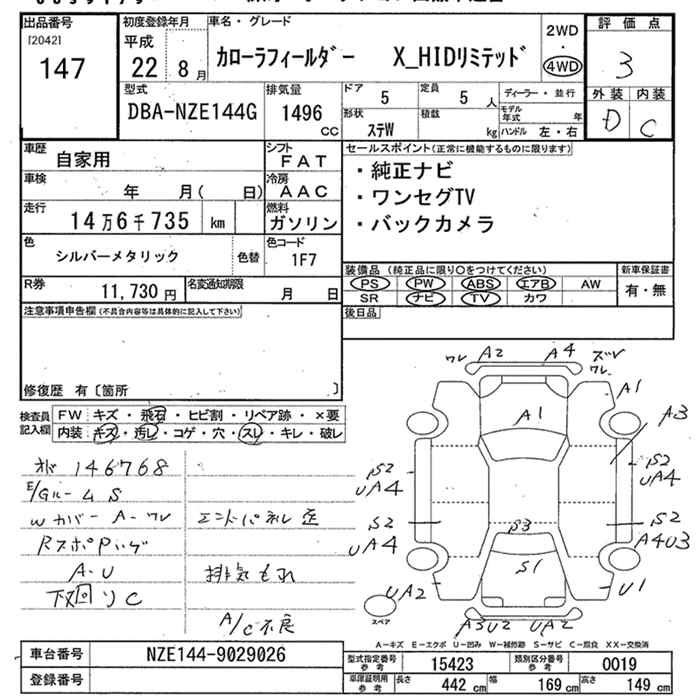 出品番号 初度登録年月 車名・グレード 評価点
[2042]
147
平成
22 8月
カローラフィールダー X_HIDリミテッド
2WD
・
4WD
3
外装 内装
D C
型式
DBA-NZE144G
排気量
1496
cc
ドア 5 定員 5 人
ディーラー・並行
形状 ステW 積載 kg
モデル年式 年
ハンドル 左・右
車歴 自家用
シフト FAT
車検 年 月( 日)
冷房 AAC
走行 14万6千735 km
燃料 ガソリン
色 シルバーメタリック 色替
色コード 1F7
R券 11,730円
名変通知期限 月 日
セールスポイント(正常に機能するものに限ります)
・純正ナビ
・ワンセグTV
・バックカメラ
装備品(純正品に限り○をつけてください) 新車保証書
PS PW ABS エアB AW
SR ナビ TV カワ
有・無
後日品
注意事項申告欄(不具合内容等は具体的に記入して下さい)
修復歴 有〔箇所 〕
検査員記入欄
FW キズ・飛石・ヒビ割・リペア跡・×要
内装 キズ・汚レ・コゲ・穴・スレ・キレ・破レ
146768
E/Gルーム S
Wカバー A-ワレ
エンドパネル歪
A-U
排気もれ
下回りC
A/C不良
ワレ A2 A4 ズレ
ワレ
A1
A1
A3
S2
UA4
S2
UA4
S2
UA4
S2
A4U3
S3
S1
UA2
U1
A3U2 UA2
スペア
A-キズ E-エクボ U-凹み W-補修跡 S-サビ C-腐食 XX-交換済
車台番号 NZE144-9029026
登録番号
型式指定番号 参考 15423
類別区分番号 参考 0019
車庫証明用 参考
長さ 442 cm 幅 169 cm 高さ 149 cm